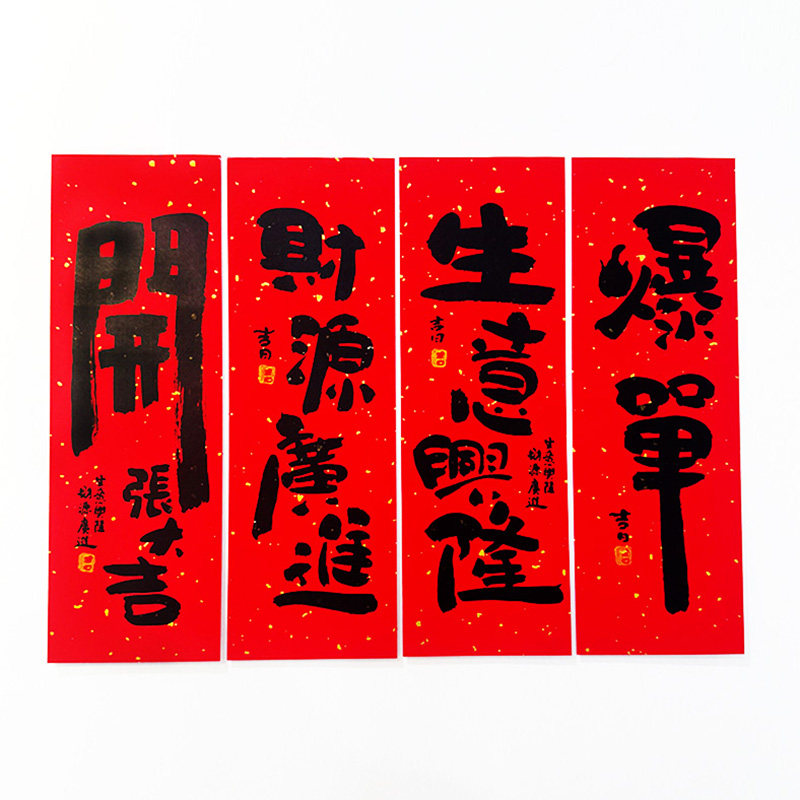 開張大吉
生意興隆
財源廣進
財源廣進
吉日
生意興隆
吉日
生意興隆
財源廣進
爆單
吉日